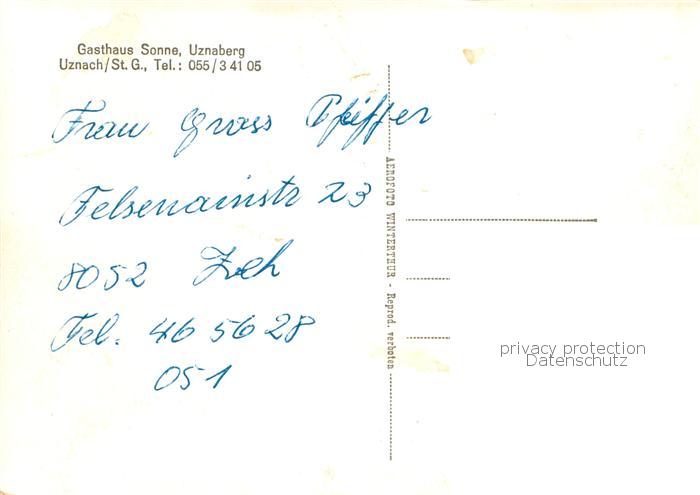 Gasthaus Sonne, Uznaberg
Uznach/St. G., Tel.: 055/3 41 05
Frau Gross Pfeiffer
Felsenrainstr 23
8052 Zch
Tel. 46 56 28
051
AEROFOTO WINTERTHUR - Reprod. verboten
privacy protection
Datenschutz